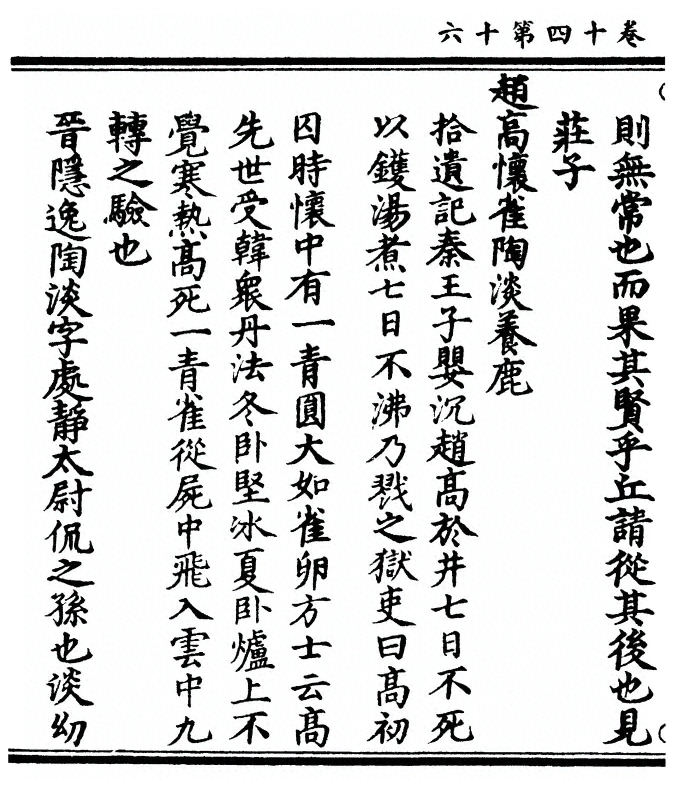 卷十四第十六
則無常也而果其賢乎丘請從其後也見
莊子
趙高懷雀陶淡養鹿
拾遺記秦王子嬰沉趙高於井七日不死
以鑊湯煮七日不沸乃戮之獄吏曰高初
囚時懷中有一青圓大如雀卵方士云高
先世受韓衆丹法冬卧堅冰夏卧爐上不
覺寒熱高死一青雀從屍中飛入雲中九
轉之驗也
晉隱逸陶淡字處靜太尉侃之孫也淡幼